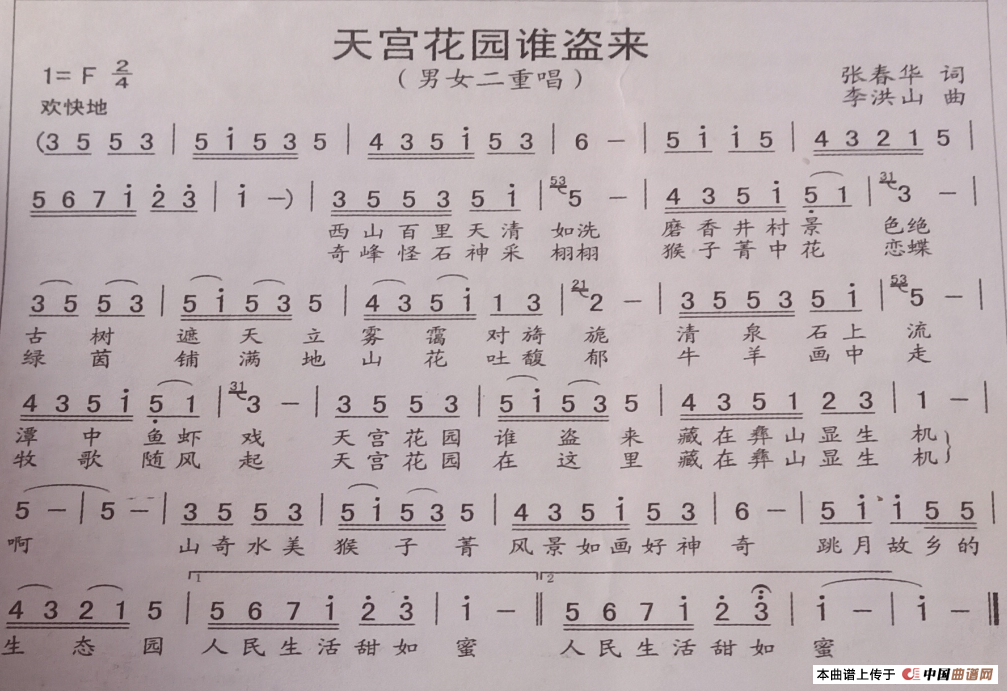 天宫花园谁盗来
（男女二重唱）
1= F 2/4
张春华 词
欢快地
李洪山 曲
(3 5 5 3 | 5 i 5 3 5 | 4 3 5 i 5 3 | 6 － | 5 i i 5 | 4 3 2 1 5 |
5 6 7 i 2̇ 3̇ | i －) | 3 5 5 3 5 i | 53 5 － | 4 3 5 i 5̣ 1 | 31 3 － |
西山百里天清 如洗 磨香井村景 色绝
奇峰怪石神采 栩栩 猴子菁中花 恋蝶
3 5 5 3 | 5 i 5 3 5 | 4 3 5 i 1 3 | 21 2 － | 3 5 5 3 5 i | 53 5 － |
古 树 遮 天 立 雾 霭 对 旖 旎 清 泉 石上 流
绿 茵 铺 满 地 山 花 吐馥 郁 牛 羊 画中 走
4 3 5 i 5̣ 1 | 31 3 － | 3 5 5 3 | 5 i 5 3 5 | 4 3 5 1 2 3 | 1 － |
潭 中 鱼虾 戏 天宫花园 谁 盗 来 藏在彝山显生 机
牧 歌 随风 起 天宫花园 在 这 里 藏在彝山显生 机
5 － | 5 － | 3 5 5 3 | 5 i 5 3 5 | 4 3 5 i 5 3 | 6 － | 5 i i 5 5 |
啊 山奇水美 猴 子 菁 风景如画好神 奇 跳月故乡的
4 3 2 1 5 | 1 5 6 7 i 2̇ 3̇ | i － ‖ 2 5 6 7 i 2̇ 3̇ | i － | i － ‖
生 态 园 人民生活甜如 蜜 人民生活甜如 蜜
本曲谱上传于 中国曲谱网